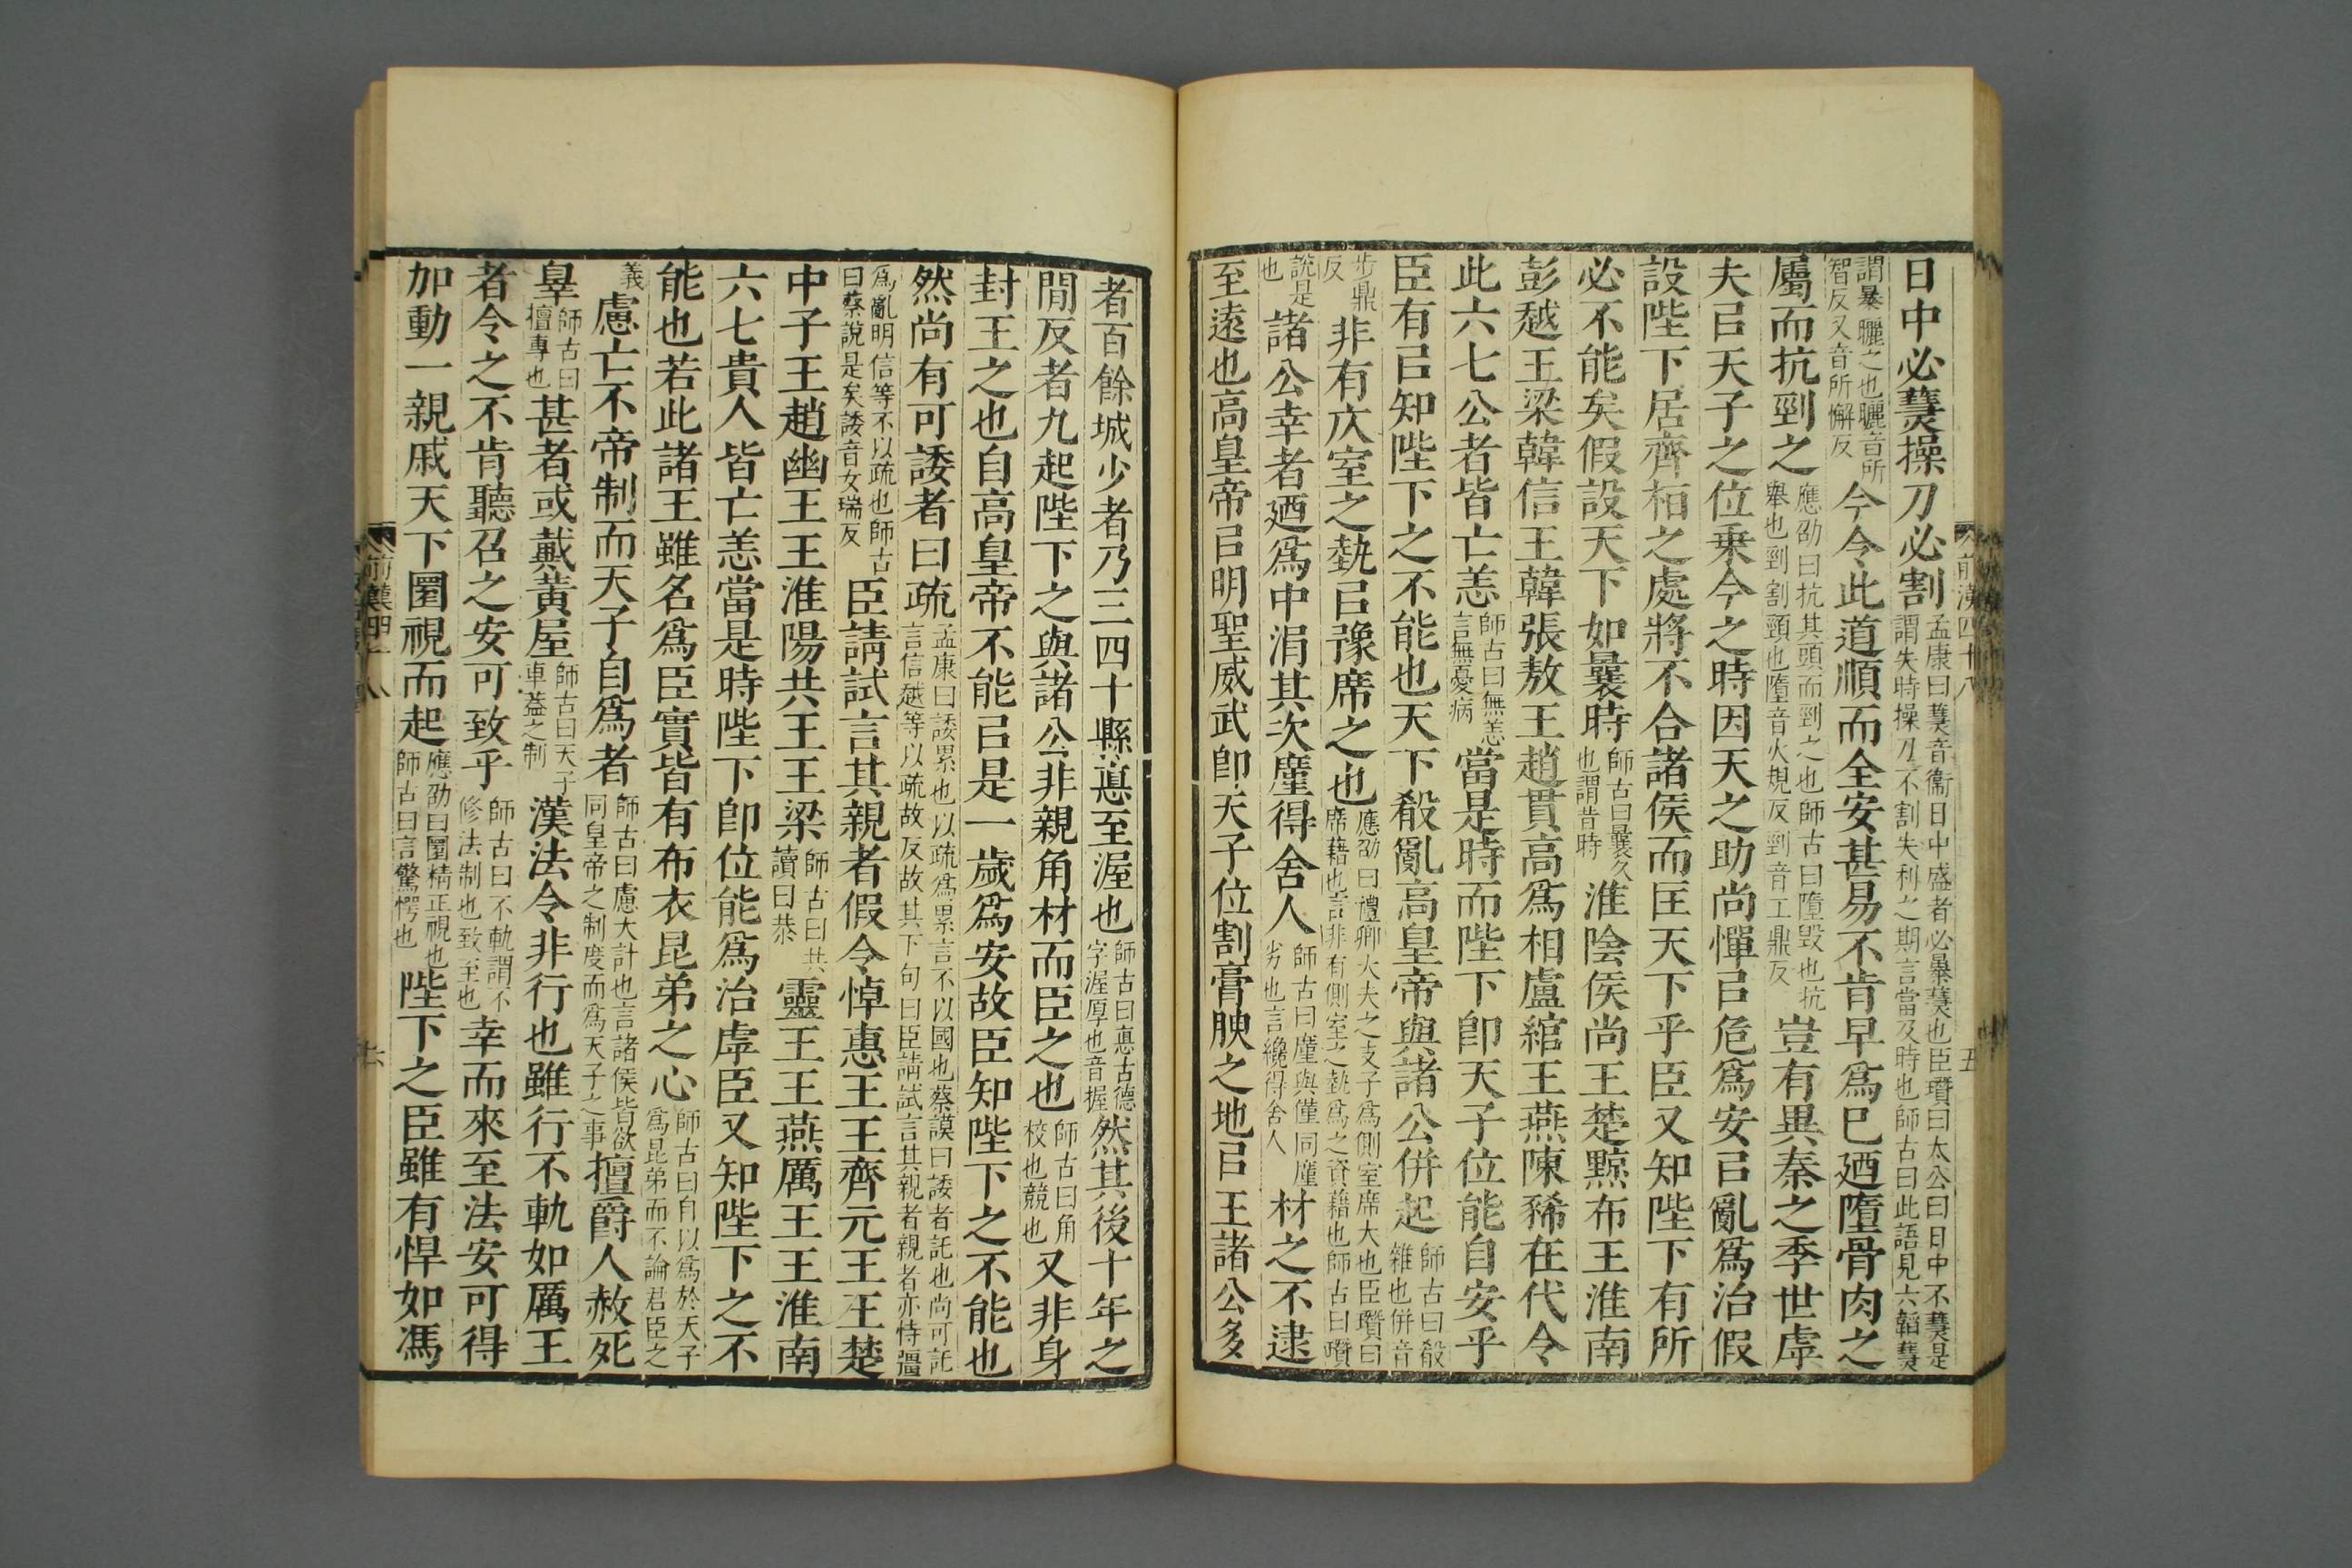 日中必𤑭操刀必割孟康曰𤑭音衞日中盛者必暴𤑭也臣瓚曰太公曰日中不𤑭是謂失時操刀不割失利之期言當及時也師古曰此語見六韜𤑭
謂暴曬之也曬音所智反又音所懈反今令此道順而全安甚易不肯早爲已廼墮骨肉之
屬而抗剄之應劭曰抗其頭而剄之也師古曰墮毀也抗舉也剄割頸也墮音火規反剄音工鼎反豈有異秦之季世虖
夫㠯天子之位乗今之時因天之助尚憚㠯危爲安㠯亂爲治假
設陛下居齊桓之處將不合諸侯而匡天下乎臣又知陛下有所
必不能矣假設天下如曩時師古曰曩久也謂昔時淮陰侯尚王楚黥布王淮南
彭越王梁韓信王韓張敖王趙貫高爲相盧綰王燕陳豨在代令
此六七公者皆亡恙師古曰無恙言無憂病當是時而陛下卽天子位能自安乎
臣有㠯知陛下之不能也天下殽亂高皇帝與諸公併起師古曰殽雜也併音
步鼎反非有仄室之埶㠯豫席之也應劭曰禮卿大夫之支子爲側室席大也臣瓚曰席藉也言非有側室之埶爲之資藉也師古曰瓚
說是也諸公幸者廼爲中涓其次廑得舍人師古曰廑與僅同廑劣也言纔得舍人材之不逮
至遠也高皇帝㠯明聖威武卽天子位割膏腴之地㠯王諸公多
前漢四十八 五
者百餘城少者乃三四十縣悳至渥也師古曰悳古德字渥厚也音握然其後十年之
閒反者九起陛下之與諸公非親角材而臣之也師古曰角校也競也又非身
封王之也自高皇帝不能㠯是一歲爲安故臣知陛下之不能也
然尚有可諉者曰疏孟康曰諉累也以疏爲累言不以國也蔡謨曰諉者託也尚可託言信越等以疏故反故其下句曰臣請試言其親者親者亦恃彊
爲亂明信等不以疏也師古曰蔡說是矣諉音女瑞反臣請試言其親者假令悼惠王王齊元王王楚
中子王趙幽王王淮陽共王王梁師古曰共讀曰恭靈王王燕厲王王淮南
六七貴人皆亡恙當是時陛下卽位能爲治虖臣又知陛下之不
能也若此諸王雖名爲臣實皆有布衣昆弟之心師古曰自以爲於天子爲昆弟而不論君臣之
義慮亡不帝制而天子自爲者師古曰慮大計也言諸侯皆欲同皇帝之制度而爲天子之事擅爵人赦死
辠師古曰擅專也甚者或戴黃屋師古曰天子車蓋之制漢法令非行也雖行不軌如厲王
者令之不肯聽召之安可致乎師古曰不軌謂不修法制也致至也幸而來至法安可得
加動一親戚天下圜視而起應劭曰圜精正視也師古曰言驚愕也陛下之臣雖有悍如馮
前漢四十八 六